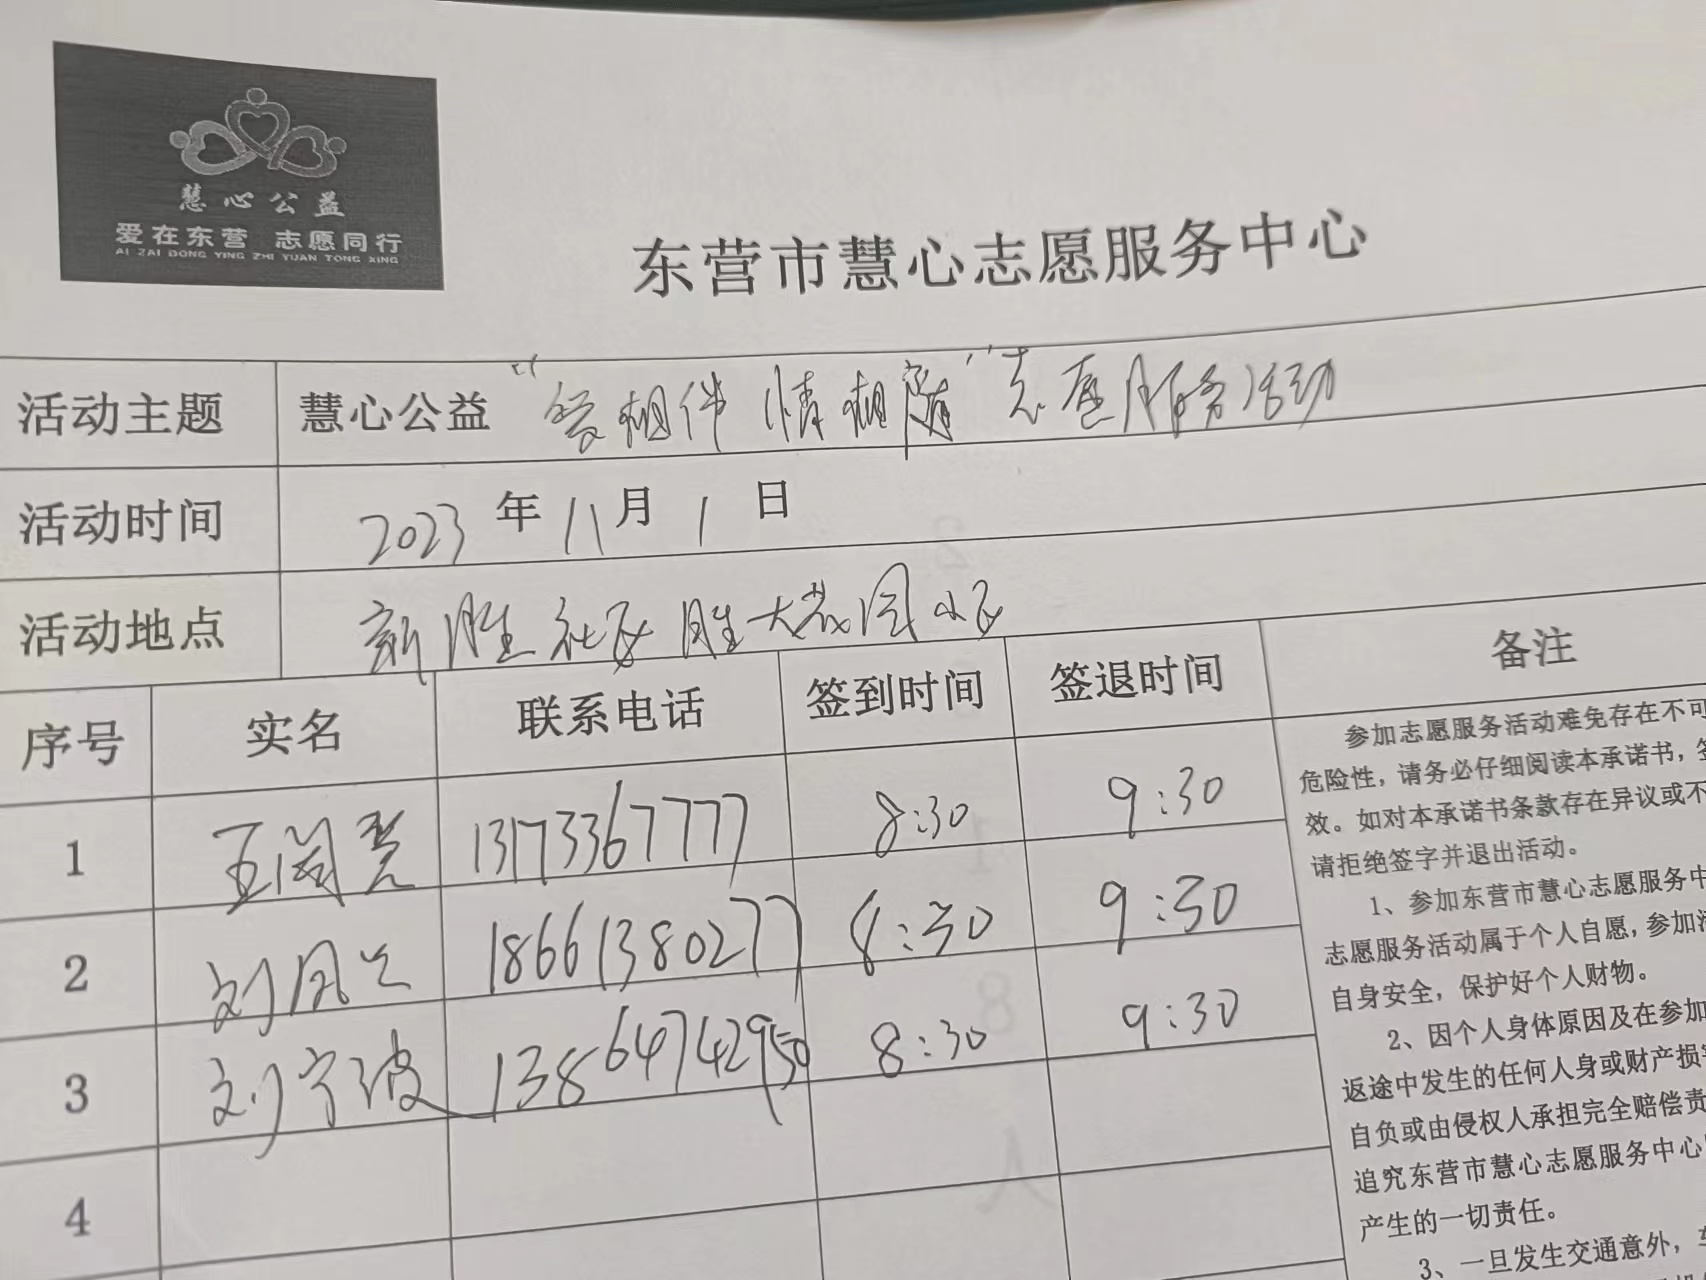 慧心公益
爱在东营 志愿同行
AI ZAI DONG YING ZHI YUAN TONG XING
东营市慧心志愿服务中心
活动主题 慧心公益 “爱相伴 情相随”志愿服务活动
活动时间 2023 年 11 月 1 日
活动地点 新胜社区胜大花园小区
序号 实名 联系电话 签到时间 签退时间 备注
1 王尚慧 13173367777 8:30 9:30
2 刘凤兰 18661380277 8:30 9:30
3 刘宁波 13864742950 8:30 9:30
4
参加志愿服务活动难免存在不可
危险性，请务必仔细阅读本承诺书，签
效。如对本承诺书条款存在异议或不
请拒绝签字并退出活动。
1、参加东营市慧心志愿服务中
志愿服务活动属于个人自愿，参加活
自身安全，保护好个人财物。
2、因个人身体原因及在参加
返途中发生的任何人身或财产损害
自负或由侵权人承担完全赔偿责
追究东营市慧心志愿服务中心
产生的一切责任。
3、一旦发生交通意外，车